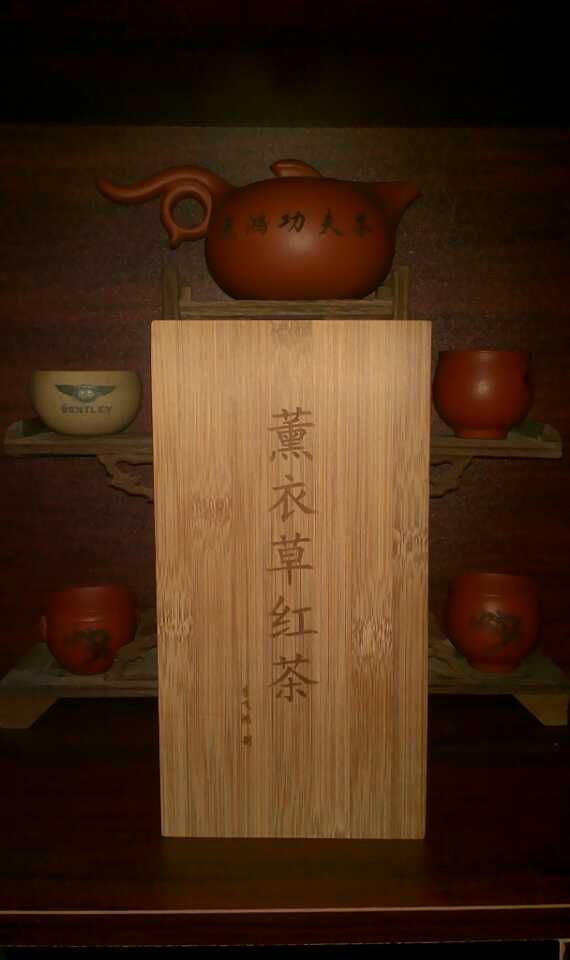 鸿功夫茶
BENTLEY
薰衣草红茶